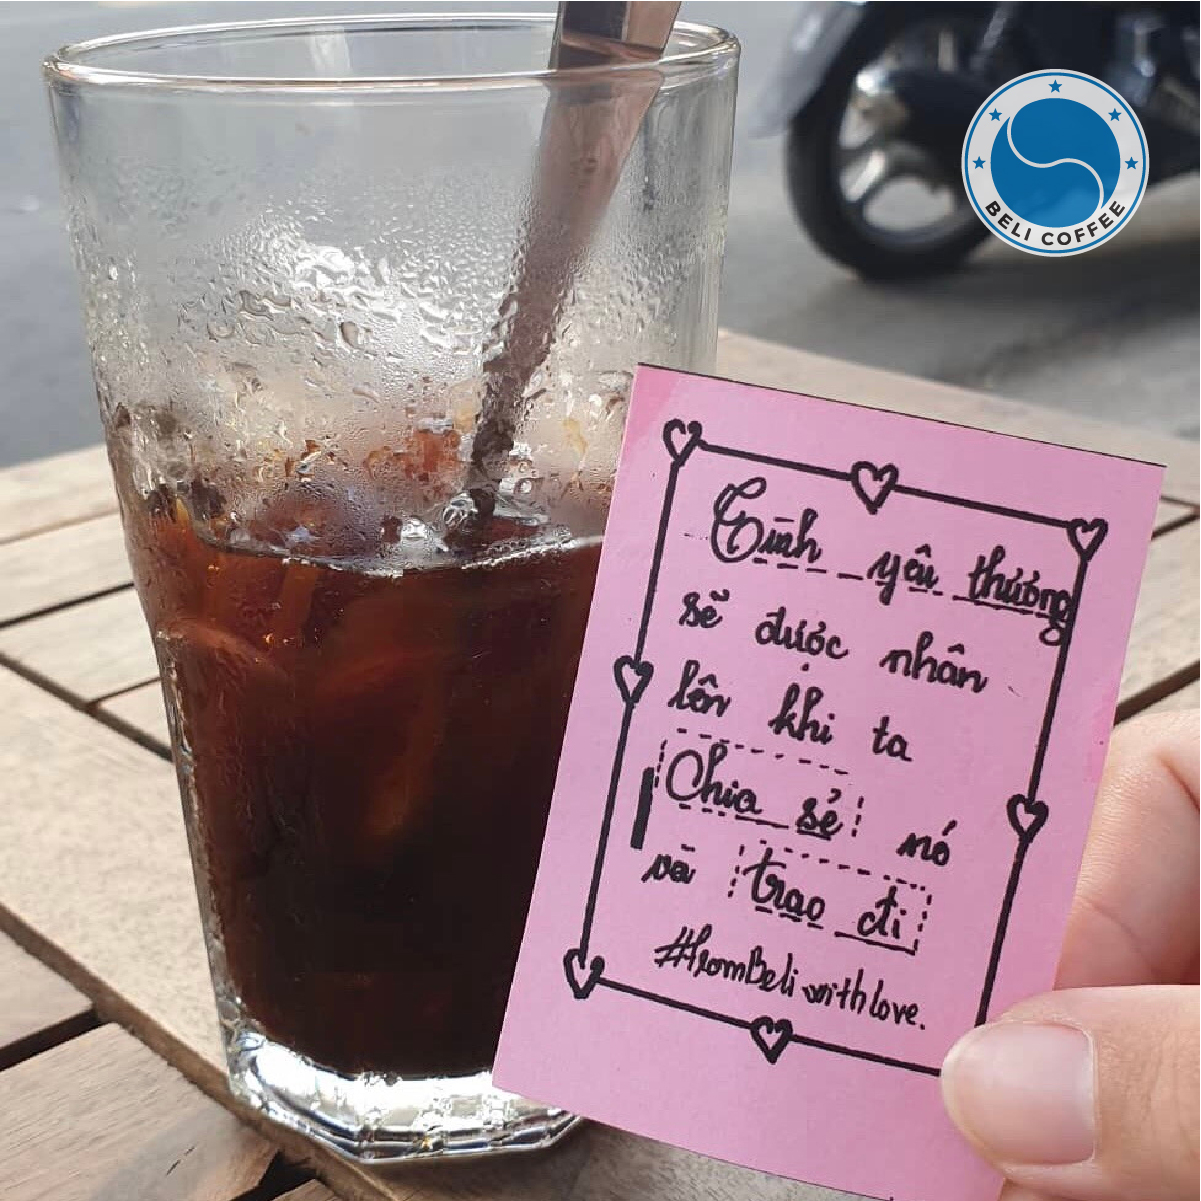 BELI COFFEE
Tình yêu thương
sẽ được nhân
lên khi ta
Chia sẻ nó
và trao đi
#FromBeliwithlove.